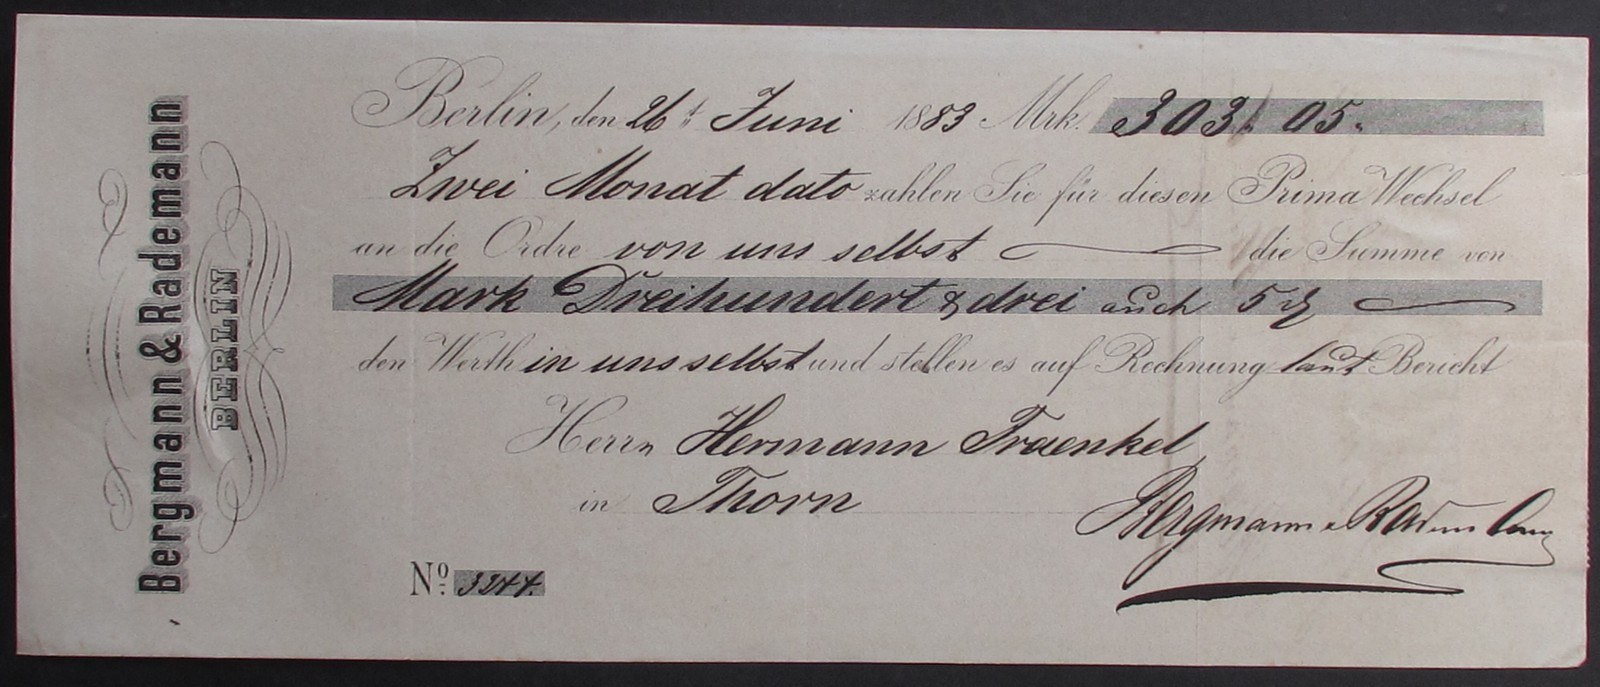 Bergmann & Rademann
BERLIN
Berlin, den 26t Juni 1883 Mrk. 303. 05.
Zwei Monat dato zahlen Sie für diesen Prima Wechsel
an die Ordre von uns selbst die Summe von
Mark Dreihundert & drei auch 5 ₰
den Werth in uns selbst und stellen es auf Rechnung laut Bericht
Herrn Hermann Fraenkel
in Thorn
Bergmann & Rademann
No. 3244.